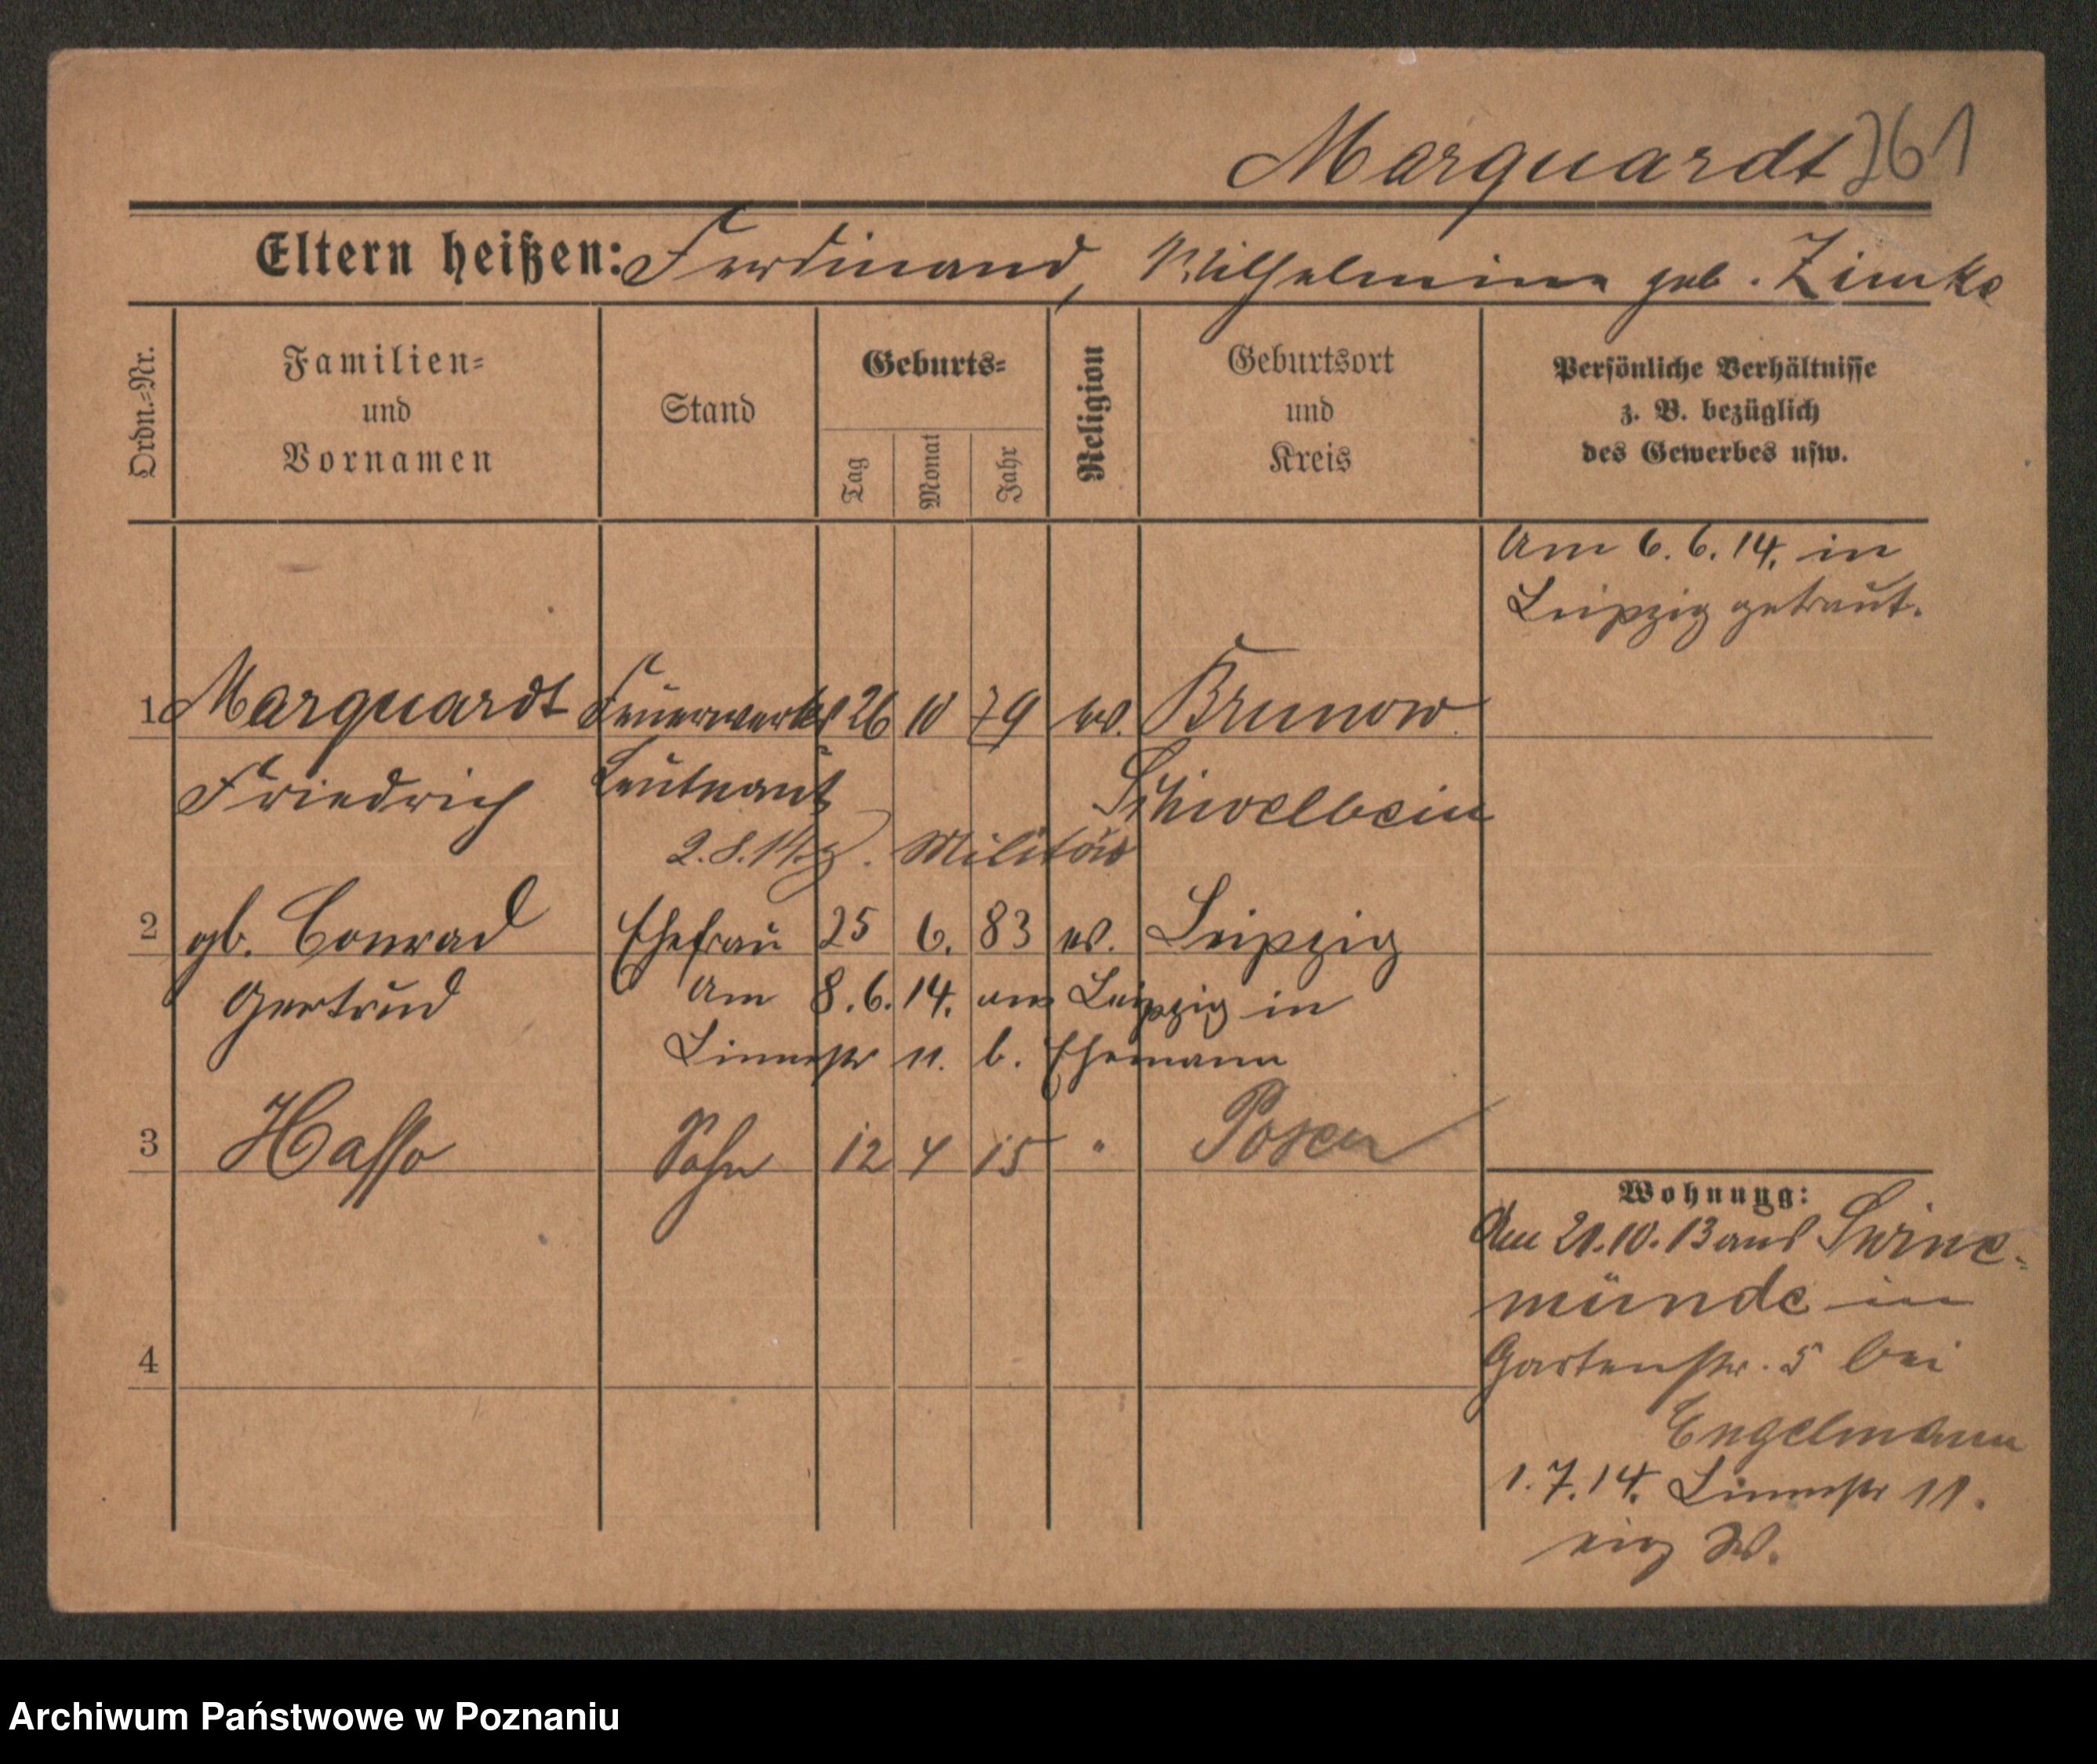 Marquardt 261
Eltern heißen: Ferdinand, Wilhelmine geb. Zimke
Ordn.-Nr.
Familien-
und
Vornamen
Stand
Geburts-
Tag
Monat
Jahr
Religion
Geburtsort
und
Kreis
Persönliche Verhältnisse
z. B. bezüglich
des Gewerbes usw.
Am 6.6.14. in
Leipzig getraut.
1 Marquardt Feuerwerks 26 10 79 ev. Brunow
Friedrich Leutnant Schivelbein
2.8.14 z. Militär
2 gb. Conrad Ehefrau 25 6. 83 ev. Leipzig
Gertrud Am 8.6.14. aus Leipzig in
Linnestr 11. b. Ehemann
3 Hasso Sohn 12 4 15 " Posen
Wohnung:
Am 21.10.13 aus Swine-
münde in
4
Gartenstr. 5 bei
Engelmann
1.7.14. Linnestr 11.
eig W.
Archiwum Państwowe w Poznaniu